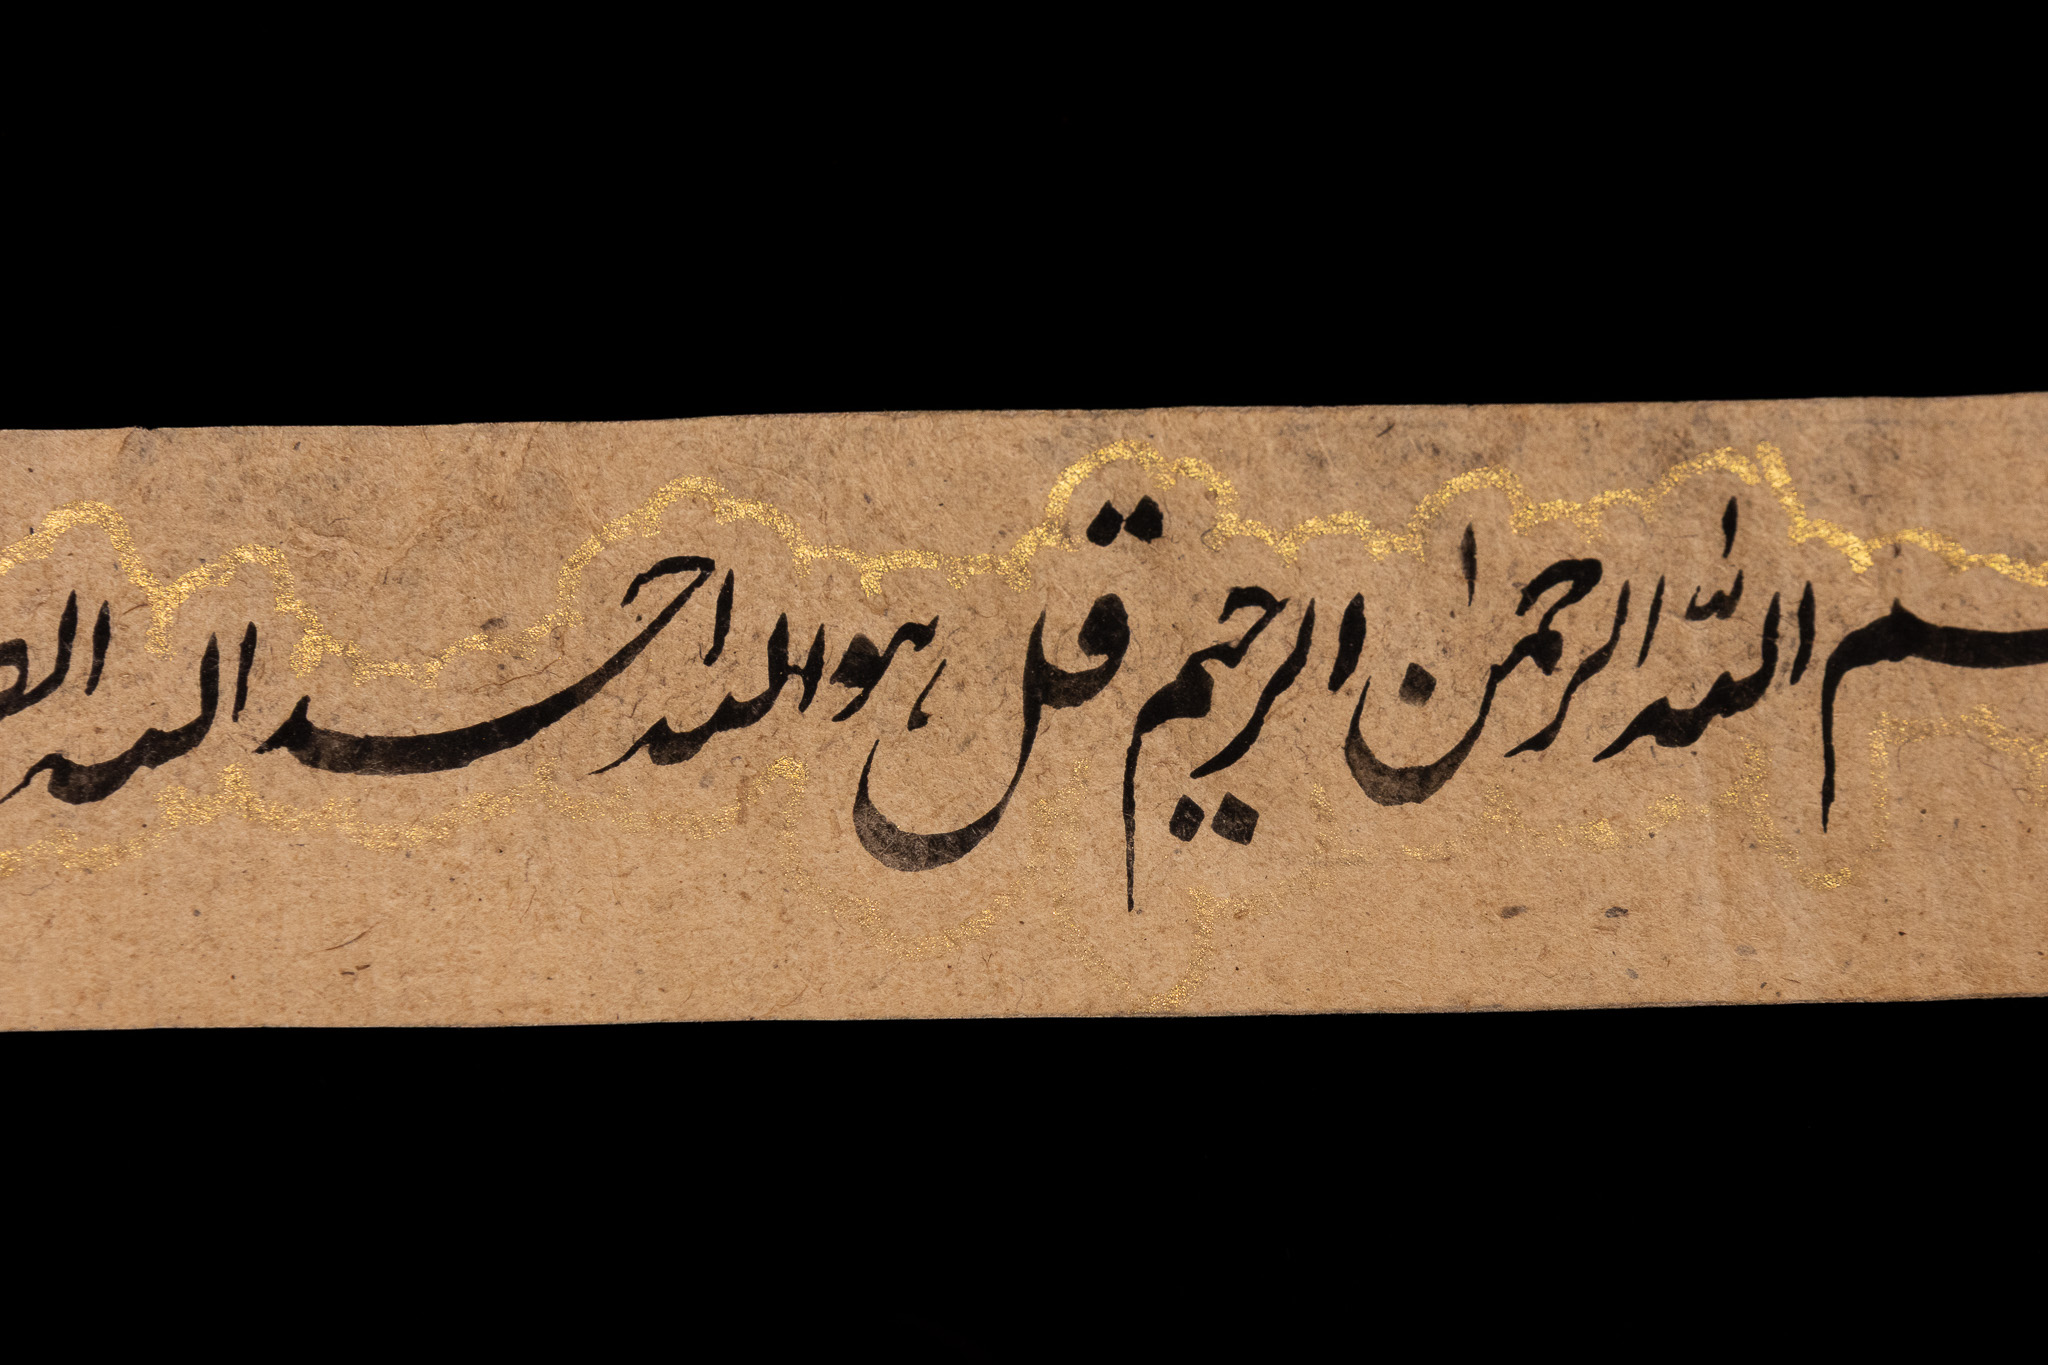 سم الله الرحمٰن الرحيم قل هو الله احد الله الص